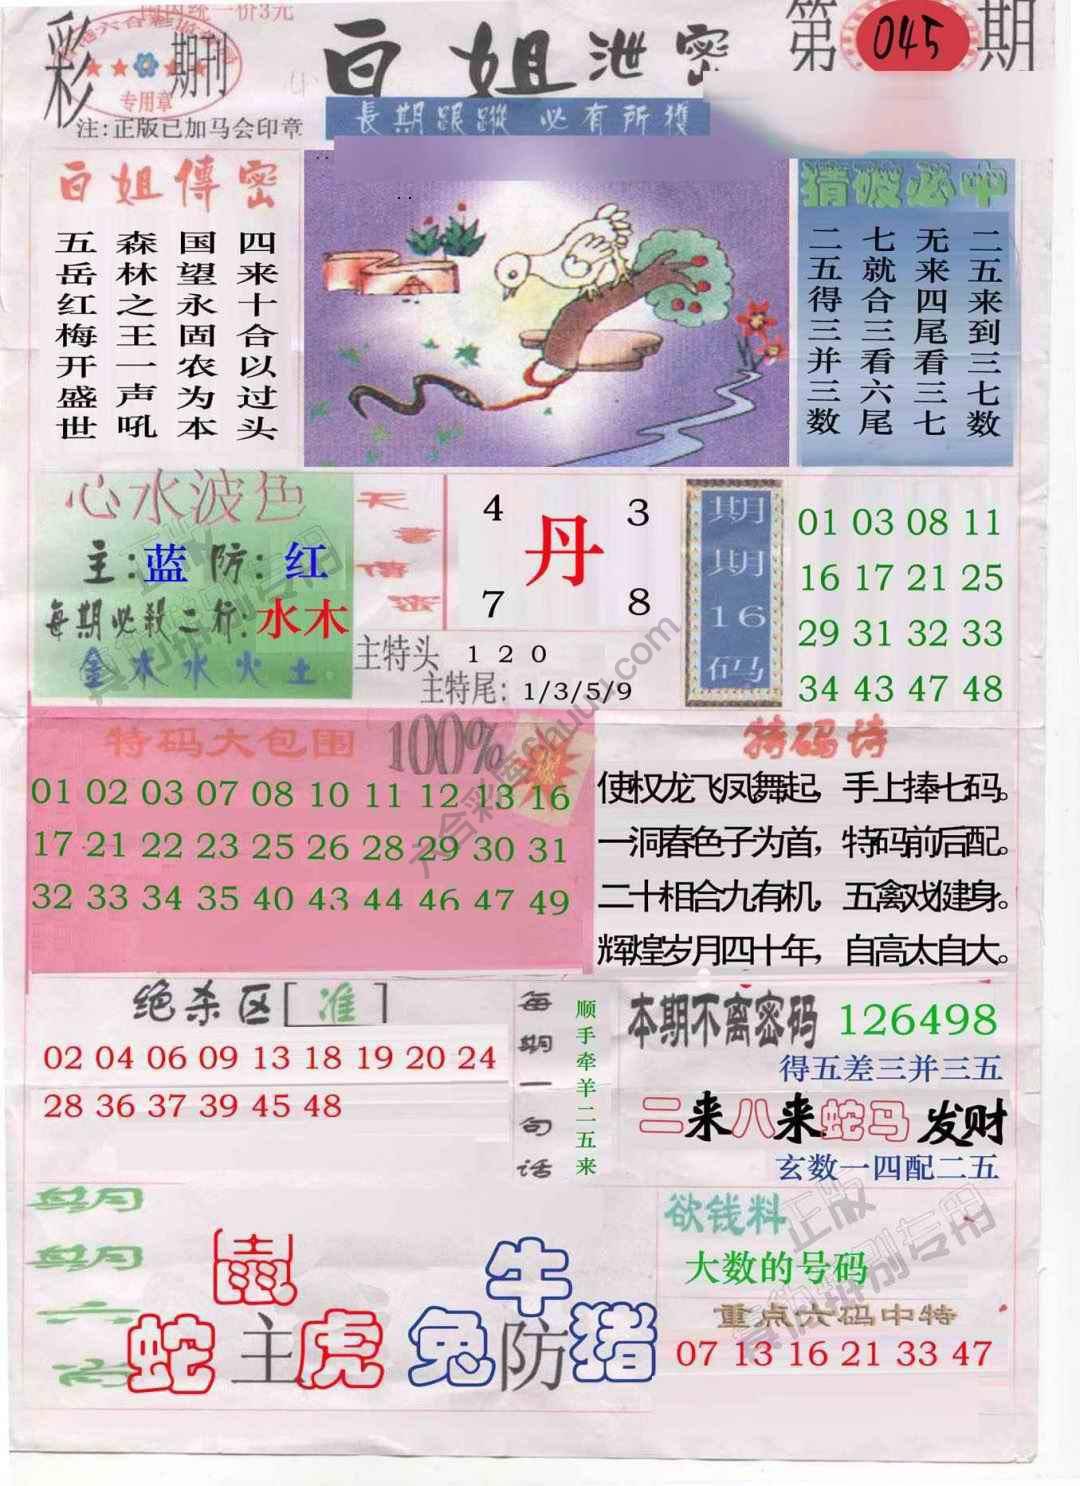 国内统一价3元
彩 期刊
专用章
注:正版已加马会印章
白姐泄密
第045期
長期跟蹤 必有所獲
白姐傳密
四来十合以过头
国望永固农为本
森林之王一声吼
五岳红梅开盛世
猜破必中
二五来到三七数
无来四尾看三七
七就合三看六尾
二五得三并三数
心水波色
主:蓝 防:红
每期必殺二行:水木
金木水火土
天書傳密
4 3
丹
7 8
主特头 1 2 0
主特尾: 1/3/5/9
期期16码
01 03 08 11
16 17 21 25
29 31 32 33
34 43 47 48
特码大包围 100%
01 02 03 07 08 10 11 12 13 16
17 21 22 23 25 26 28 29 30 31
32 33 34 35 40 43 44 46 47 49
特码诗
使权龙飞凤舞起，手上捧七码。
一洞春色子为首，特码前后配。
二十相合九有机，五禽戏健身。
辉煌岁月四十年，自高太自大。
绝杀区[准]
02 04 06 09 13 18 19 20 24
28 36 37 39 45 48
每期一句话
顺手牵羊二五来
本期不离密码 126498
得五差三并三五
二来八来蛇马 发财
玄数一四配二五
鼠
蛇主虎
牛
兔防猪
欲钱料
大数的号码
重点六码中特
07 13 16 21 33 47